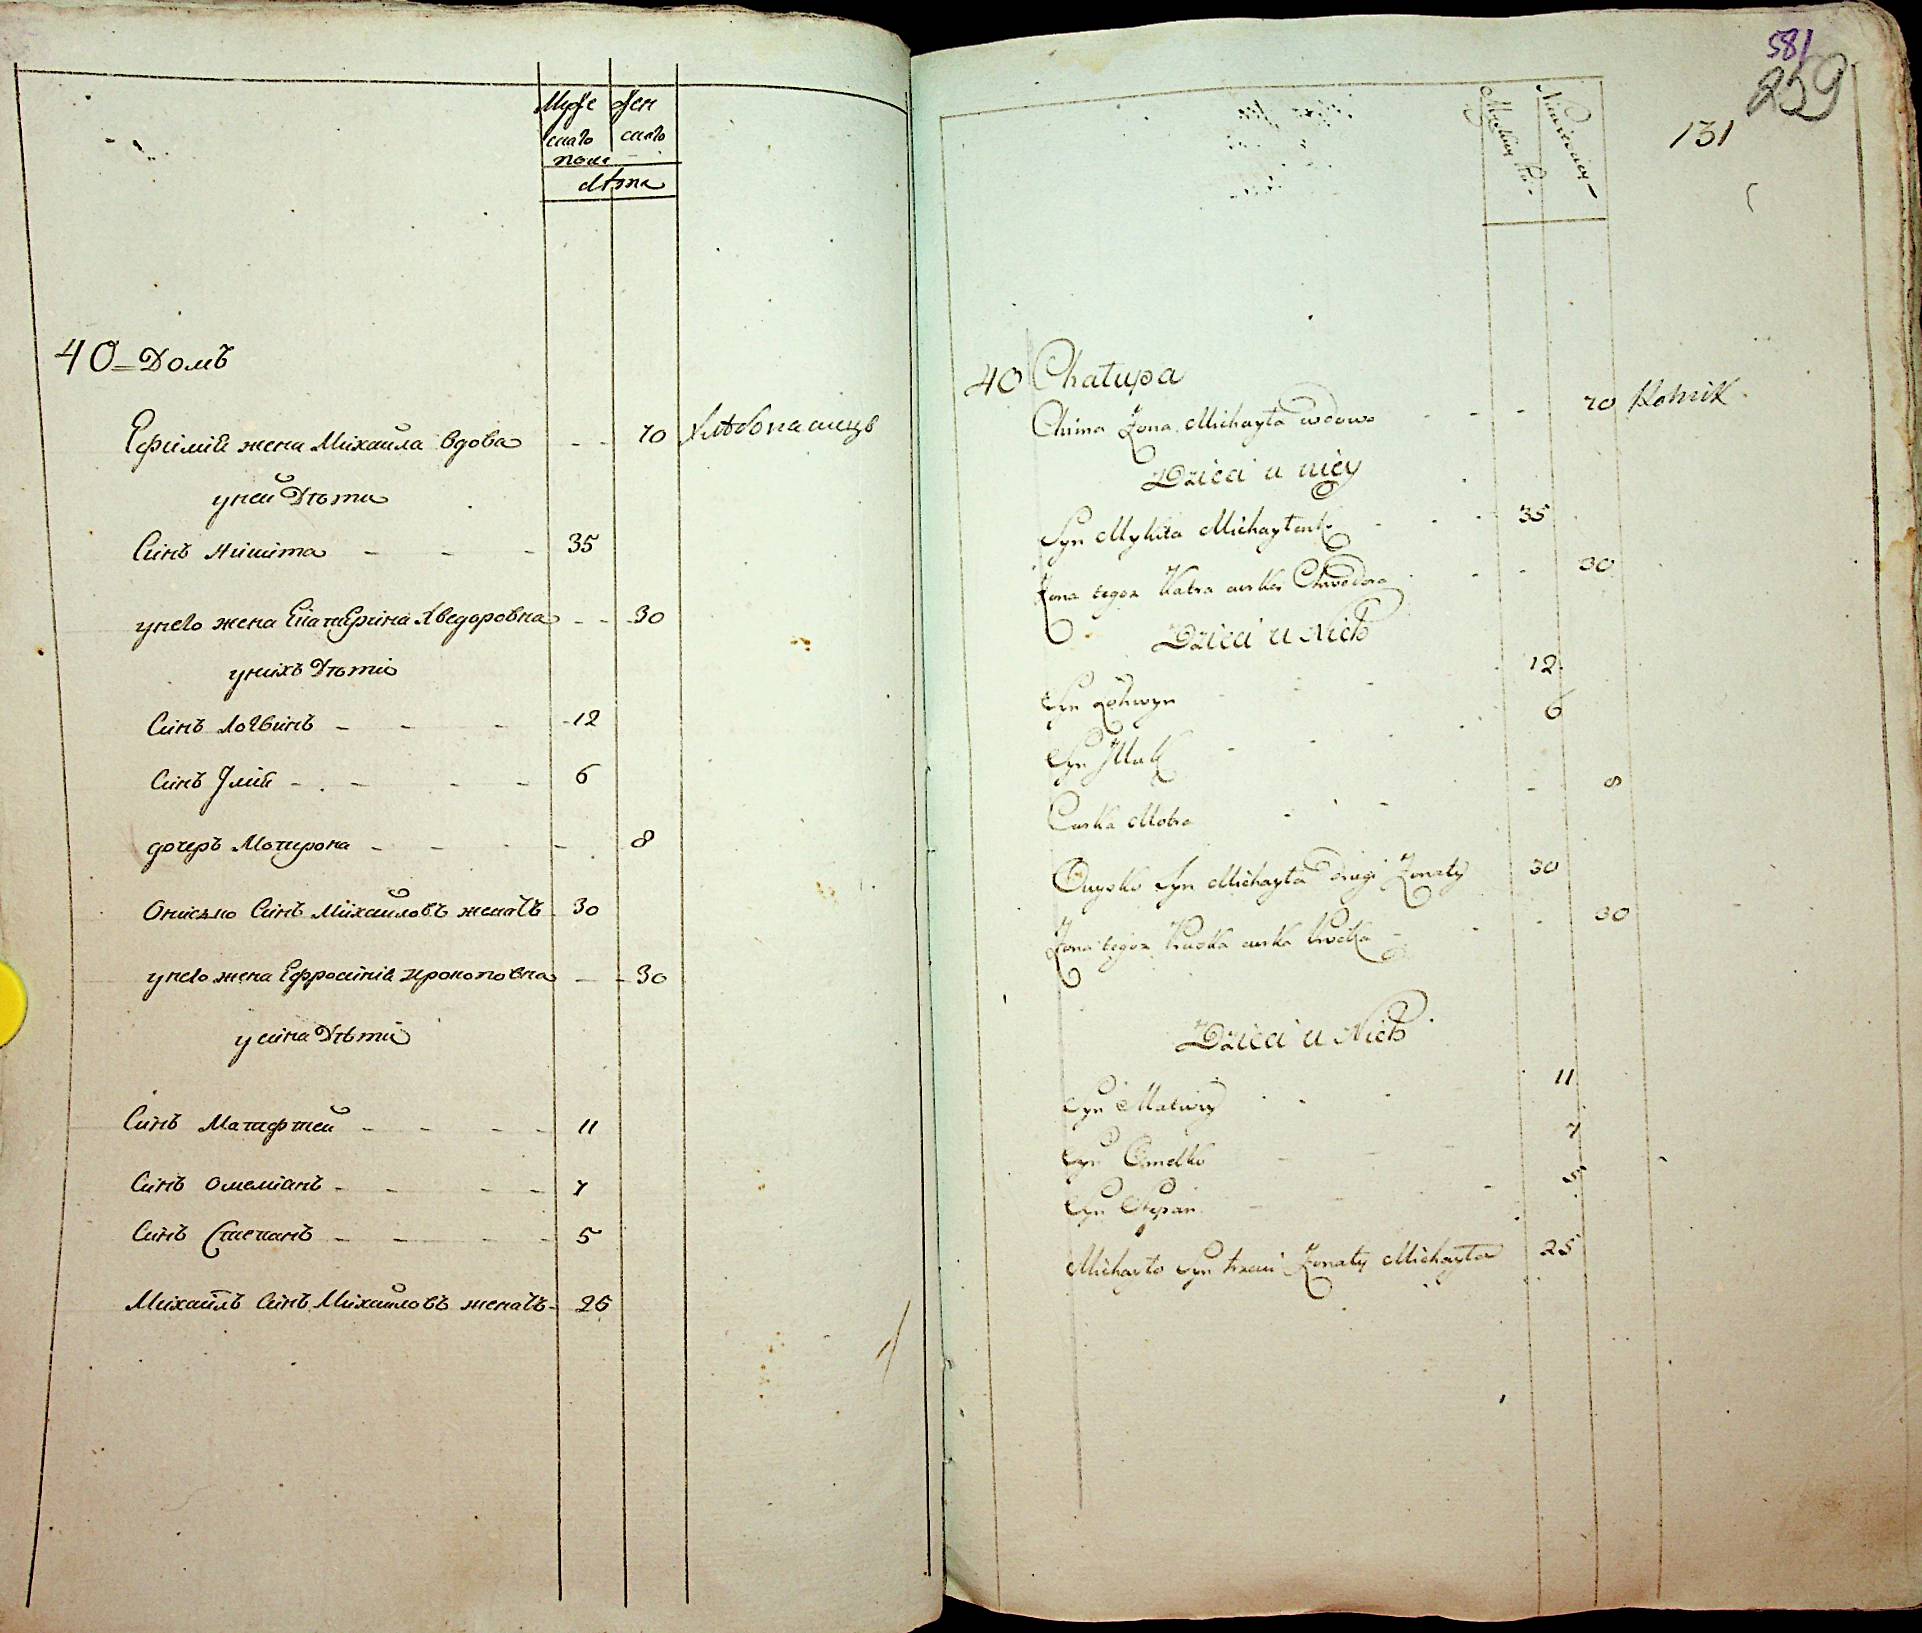 Муже жен
скаго скаго
пола
лѣта
40 – Домъ
Ефимія жена Михайла вдова - - 70 хлѣбопашецъ
у ней Дѣти
Синъ Никита - - - 35
у него жена Екатерина Хведоровна - - 30
у нихъ Дѣти
Синъ Логвинъ - - - 12
Синъ Илій - - - - 6
дочеръ Мотрона - - - - 8
Описько Синъ Михайловъ женатъ 30
у него жена Ефросинія Прокоповна - - 30
у сина Дѣти
Синъ Матфтей - - - - 11
Синъ Омелианъ - - - - 7
Синъ Степанъ - - - - 5
Михайлъ Синъ Михайловъ женатъ - 25
581
259
131
Męskiey
Niewiesciey
40 Chałupa
Chima Żona Michayła wdowa - - - 70 Rolnik
Dzieci u niey
Syn Mykita Michayłenko - - - 35
Żona tegoż Katra curka Chwedora - - - 30
Dzieci u Nich
Syn Lohwyn - - - 12
Syn Illak - - - 6
Curka Motra - - - 8
Onysko Syn Michayła drugi Żonaty 30
Żona tegoż Pruska curka Procka - - - 30
Dzieci u Nich
Syn Matwiy - - - 11
Syn Omelko - - 7
Syn Stepan - - - 5
Michayło Syn trzeci Żonaty Michayła 25